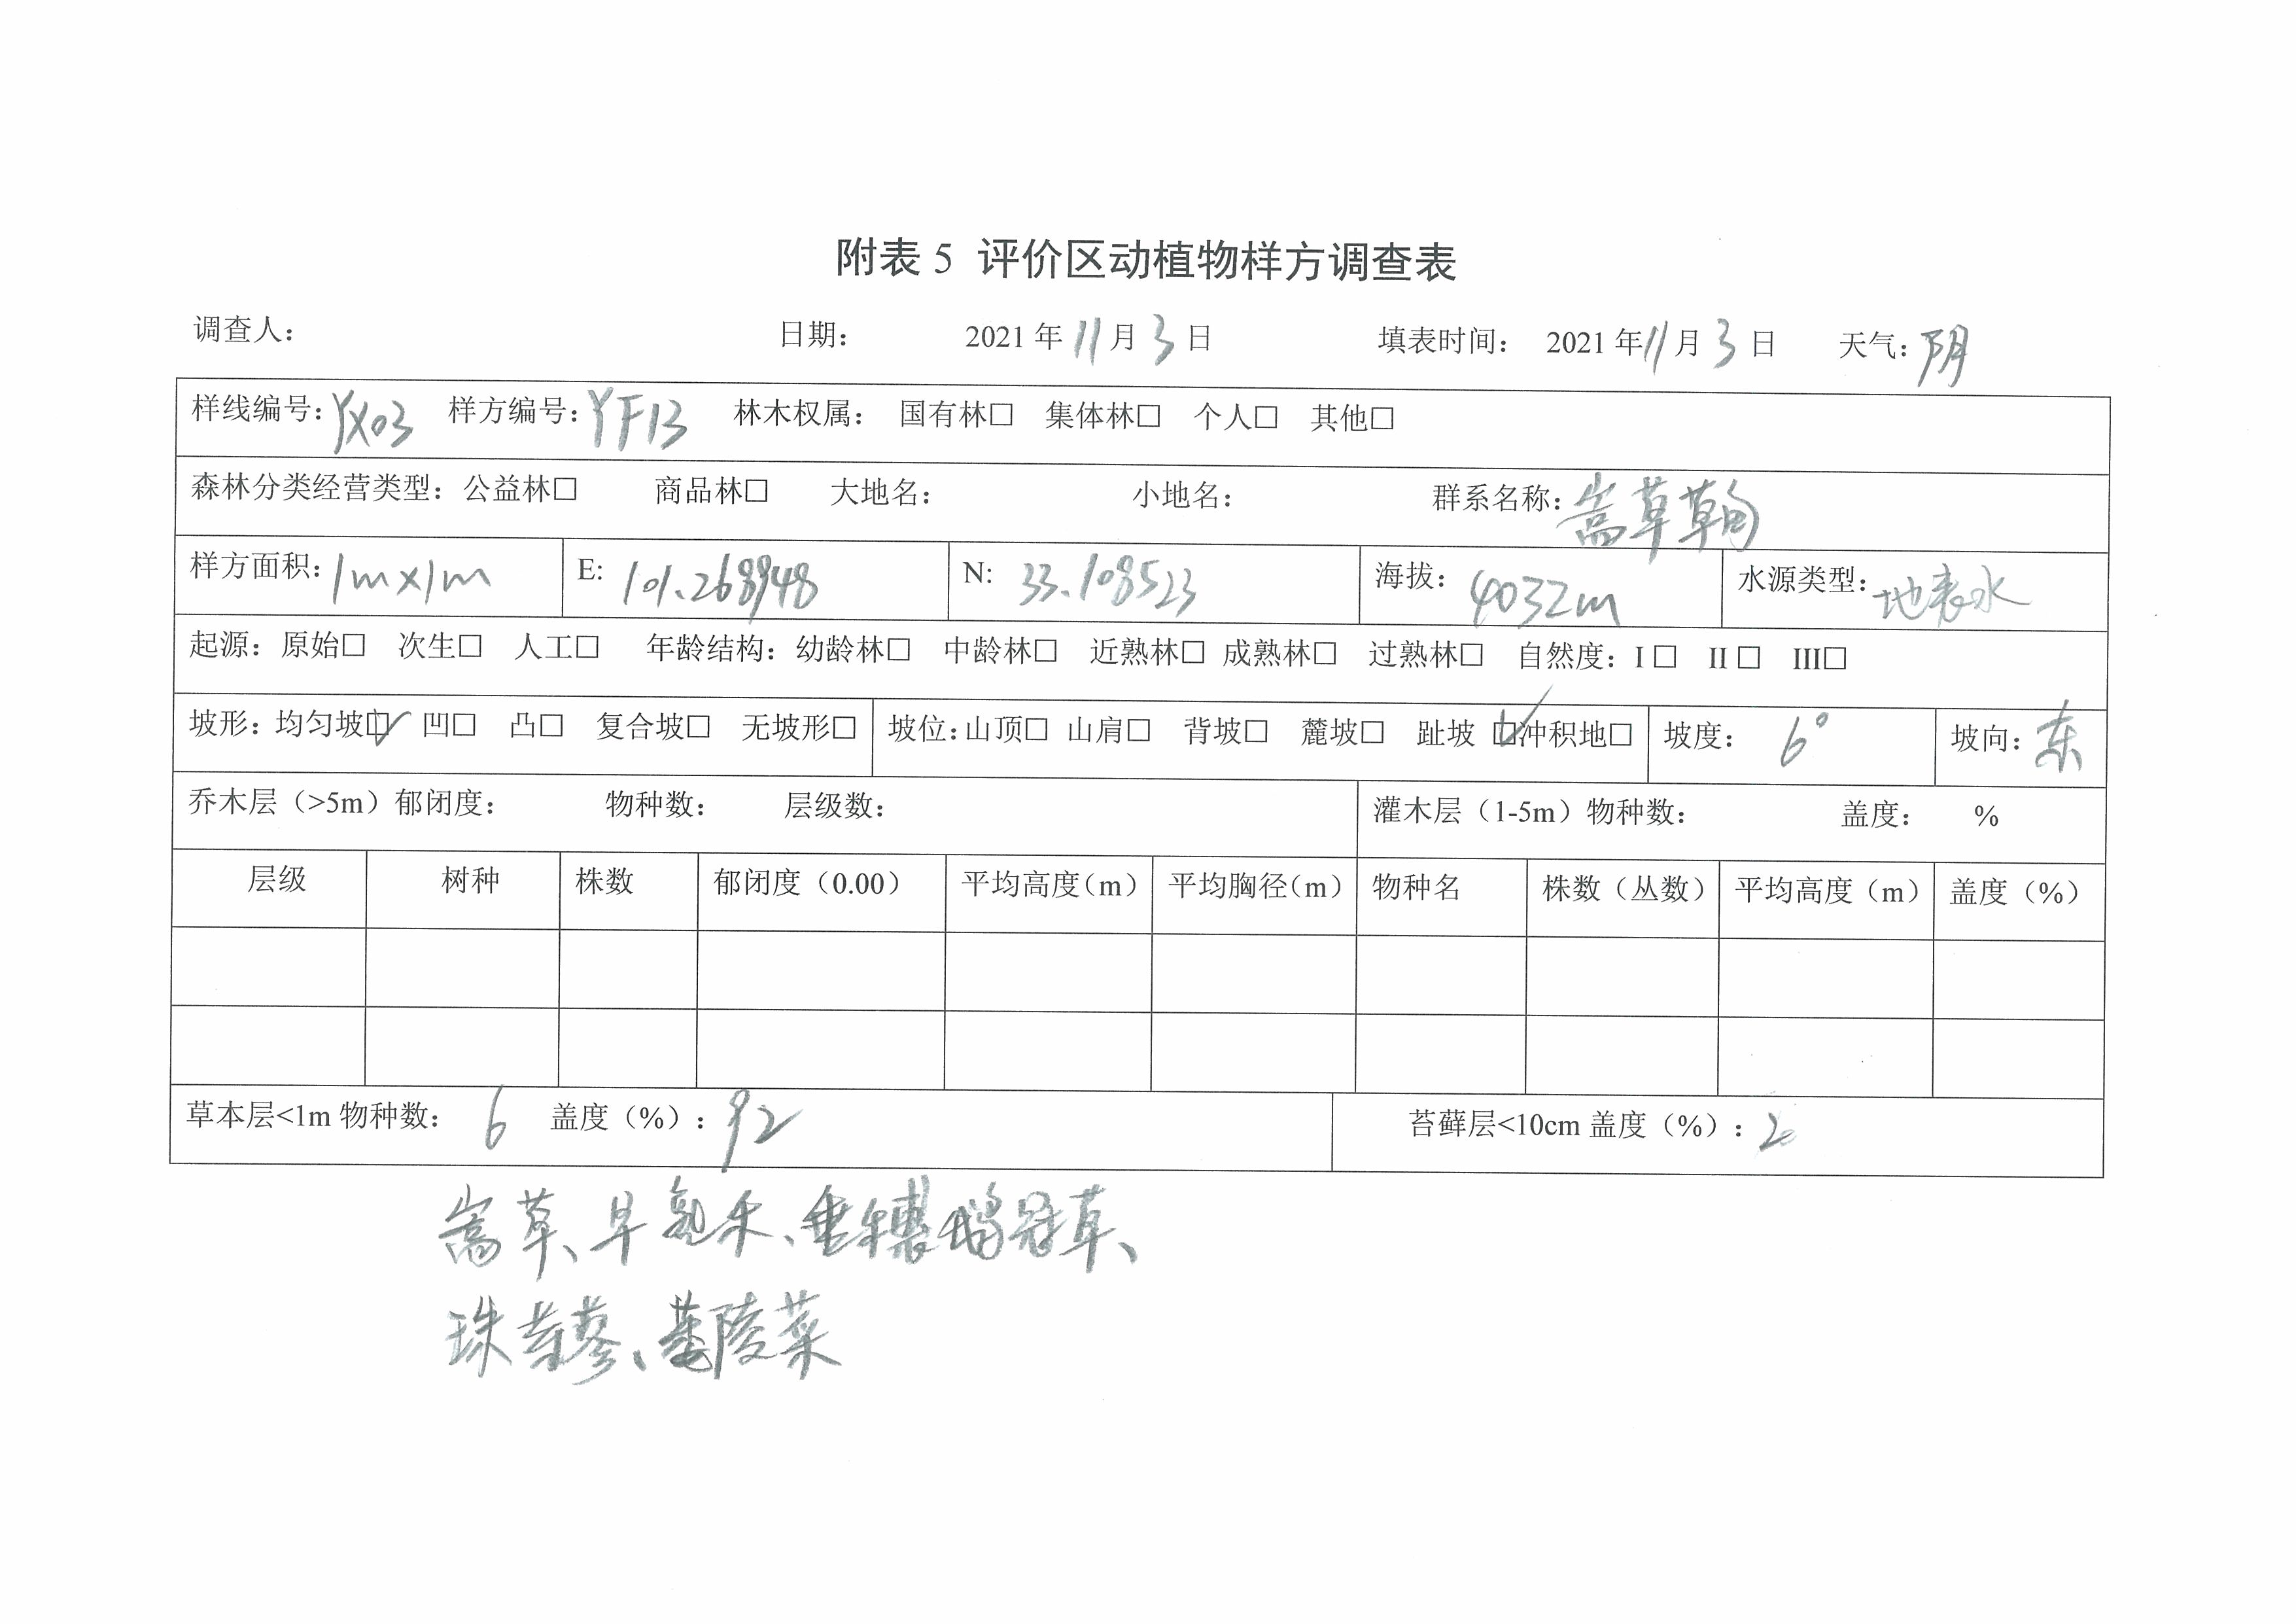 附表 5 评价区动植物样方调查表
调查人： 日期： 2021 年 11 月 3 日 填表时间： 2021 年 11 月 3 日 天气：阴
样线编号：YX03 样方编号：YF13 林木权属： 国有林□ 集体林□ 个人□ 其他□
森林分类经营类型：公益林□ 商品林□ 大地名： 小地名： 群系名称：嵩草草甸
样方面积：1m×1m E: 101.268948 N: 33.108523 海拔：4032m 水源类型：地表水
起源：原始□ 次生□ 人工□ 年龄结构：幼龄林□ 中龄林□ 近熟林□ 成熟林□ 过熟林□ 自然度：I □ II □ III□
坡形：均匀坡☑ 凹□ 凸□ 复合坡□ 无坡形□ 坡位：山顶□ 山肩□ 背坡□ 麓坡□ 趾坡 ☑冲积地□ 坡度： 6° 坡向：东
乔木层（>5m）郁闭度： 物种数： 层级数： 灌木层（1-5m）物种数： 盖度： %
层级 树种 株数 郁闭度（0.00） 平均高度（m） 平均胸径（m） 物种名 株数（丛数） 平均高度（m） 盖度（%）
草本层<1m 物种数： 6 盖度（%）：92 苔藓层<10cm 盖度（%）：
嵩草、早熟禾、垂穗鹅冠草、
珠芽蓼、委陵菜